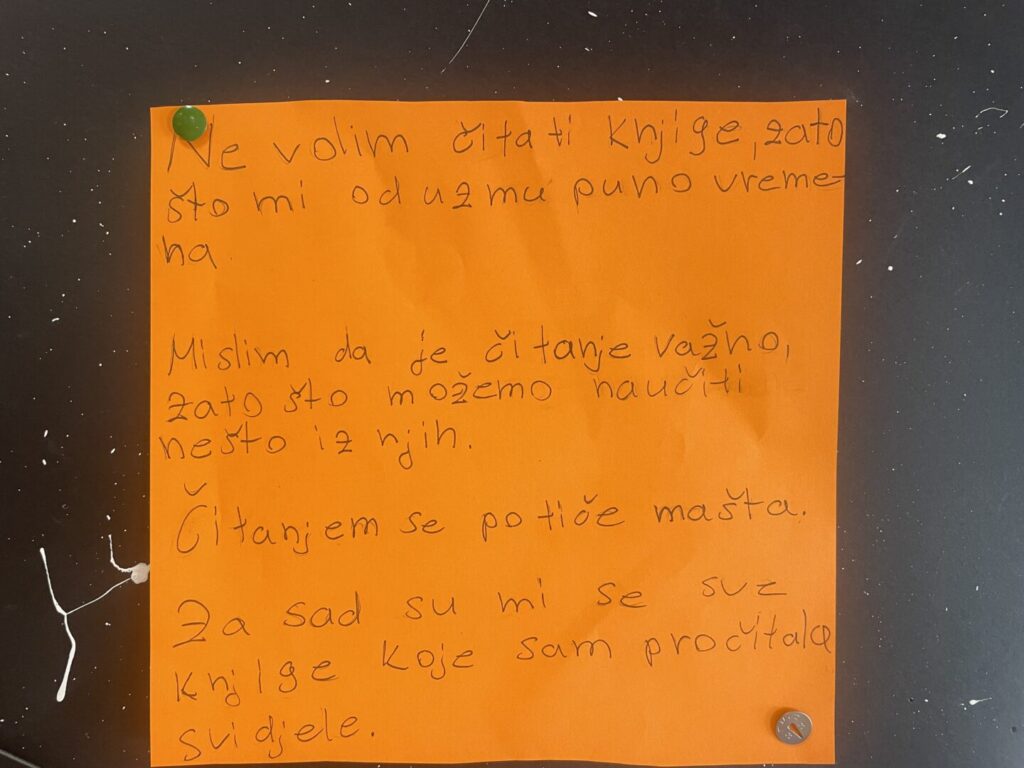 Ne volim čitati knjige, zato
što mi oduzmu puno vreme-
na.
Mislim da je čitanje važno,
zato što možemo naučiti
nešto iz njih.
Čitanjem se potiče mašta.
Za sad su mi se sve
knjige koje sam pročitala
svidjele.